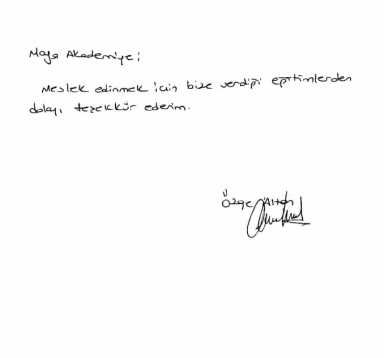 Maya Akademiye;
Meslek edinmek için bize verdiği eğitimlerden
dolayı teşekkür ederim.
Özge Altan